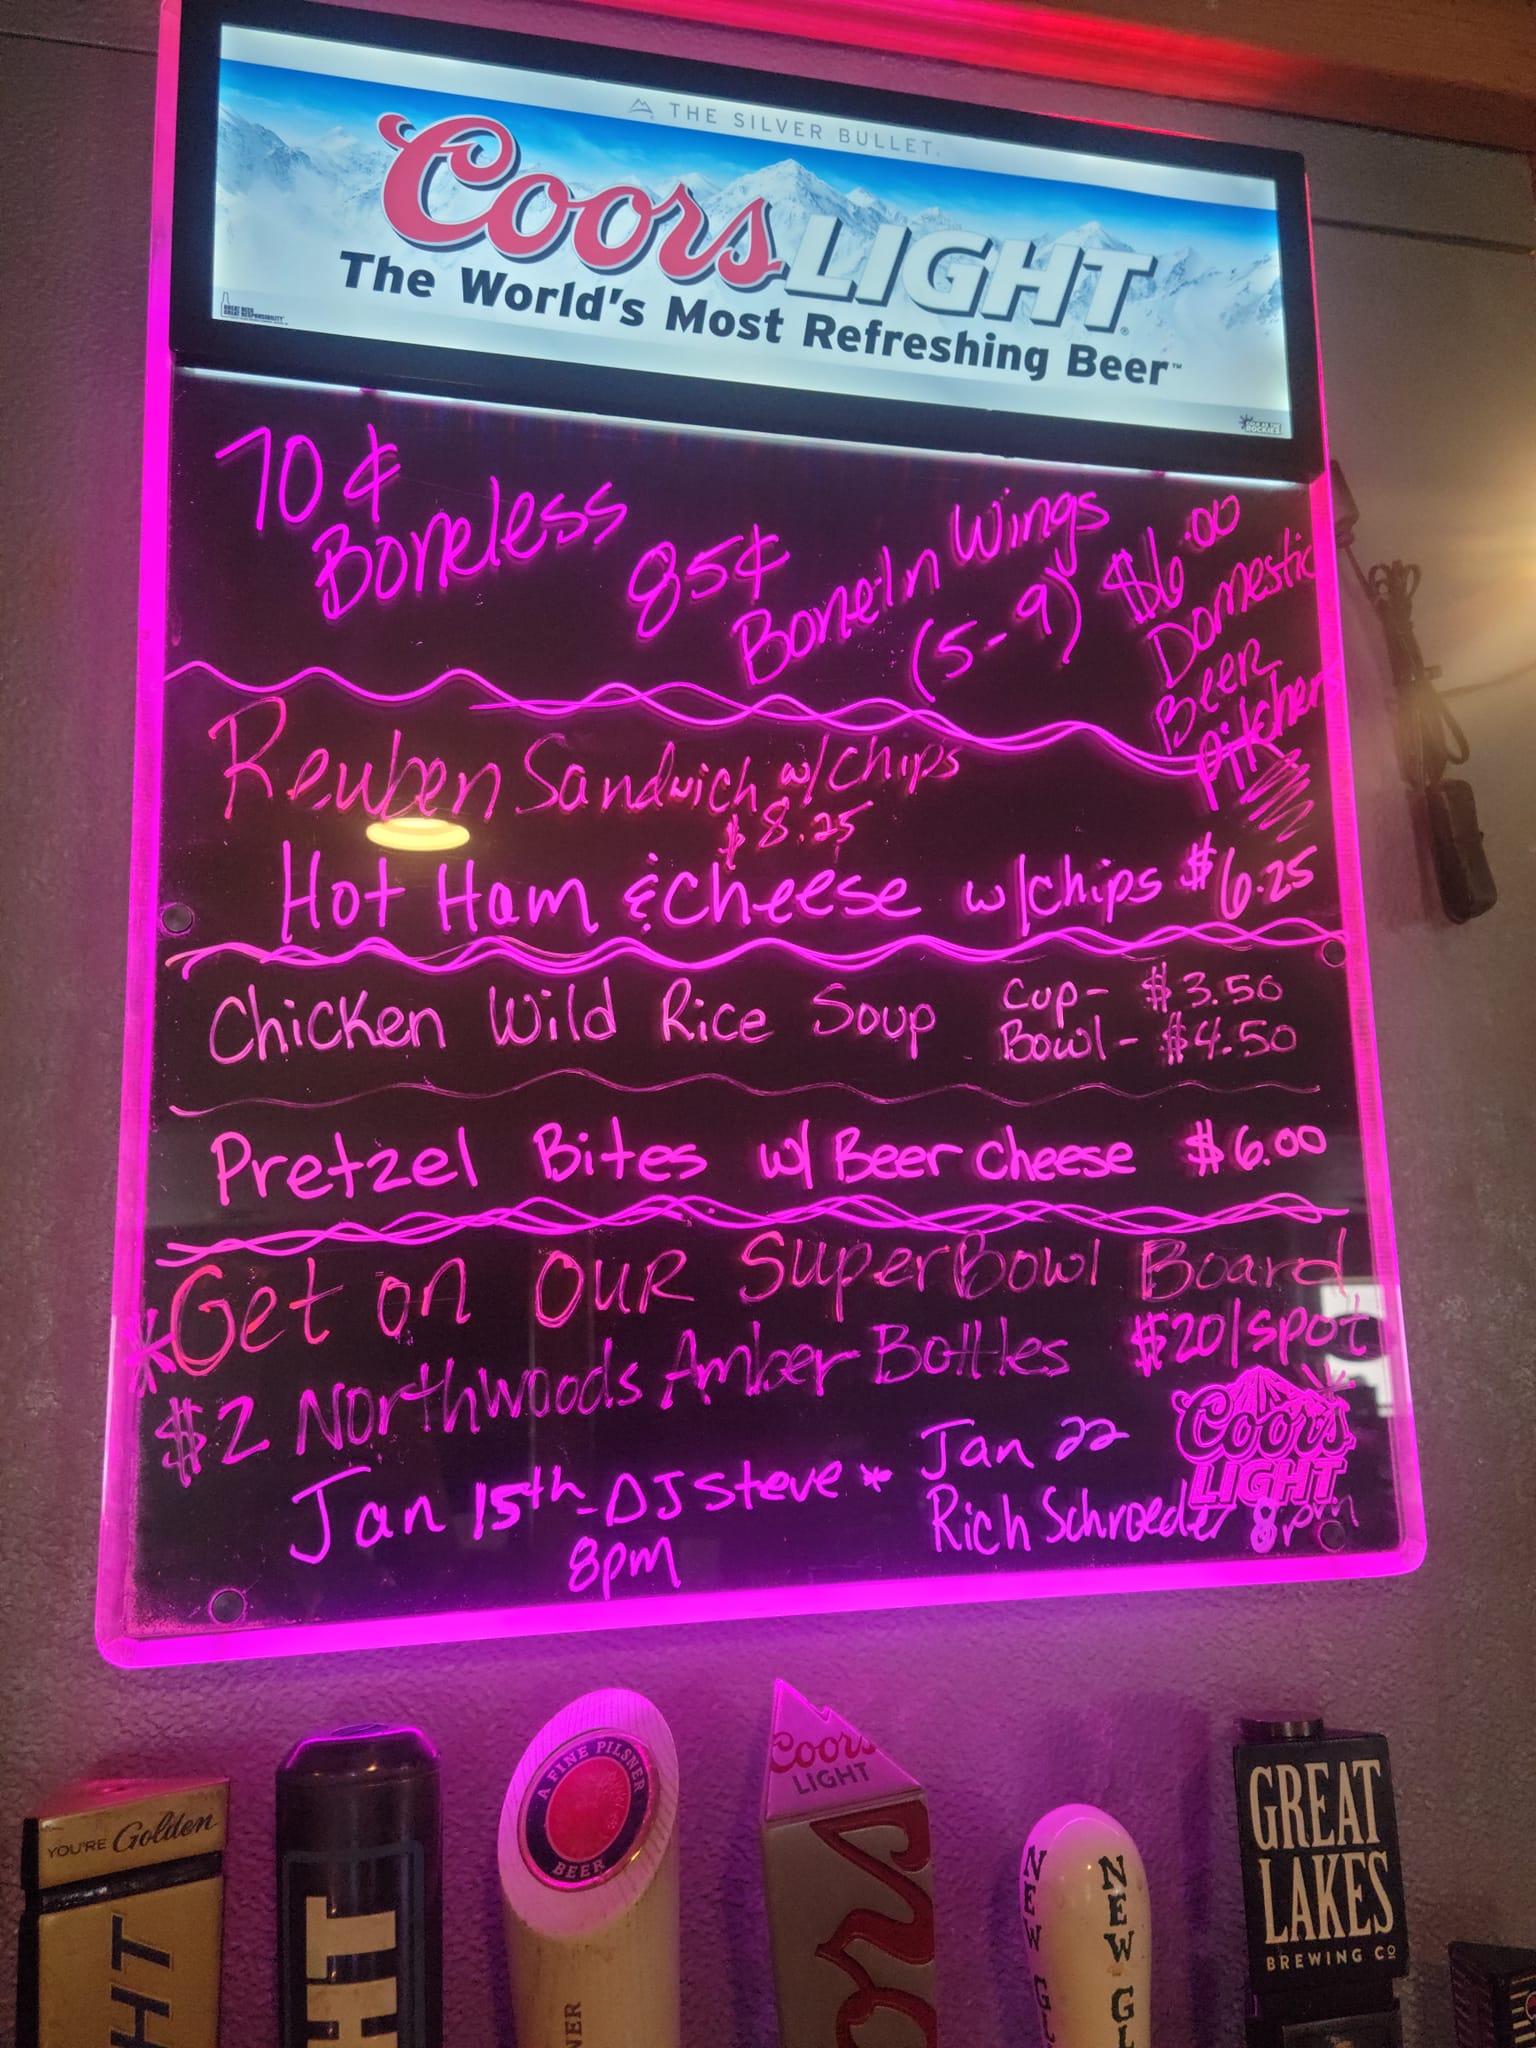 THE SILVER BULLET.
Coors LIGHT
The World's Most Refreshing Beer™
GREAT BEER
GREAT RESPONSIBILITY
COLD AS THE
ROCKIES
70¢
Boneless
85¢
Bone-In Wings
(5-9)
$6.00
Domestic
Beer
Pitchers
Reuben Sandwich w/Chips
$8.25
Hot Ham & Cheese w/chips $6.25
Chicken Wild Rice Soup Cup- $3.50
Bowl- $4.50
Pretzel Bites w/ Beer Cheese $6.00
*Get on our SuperBowl Board
$20/spot
$2 Northwoods Amber Bottles
Jan 15th-DJ Steve *
8pm
Jan 22
Rich Schroeder 8pm
Coors
LIGHT
YOU'RE Golden
HT
HT
A FINE PILSNER
BEER
NER
Coors
LIGHT
ors
NEW GL
NEW GL
GREAT
LAKES
BREWING Co